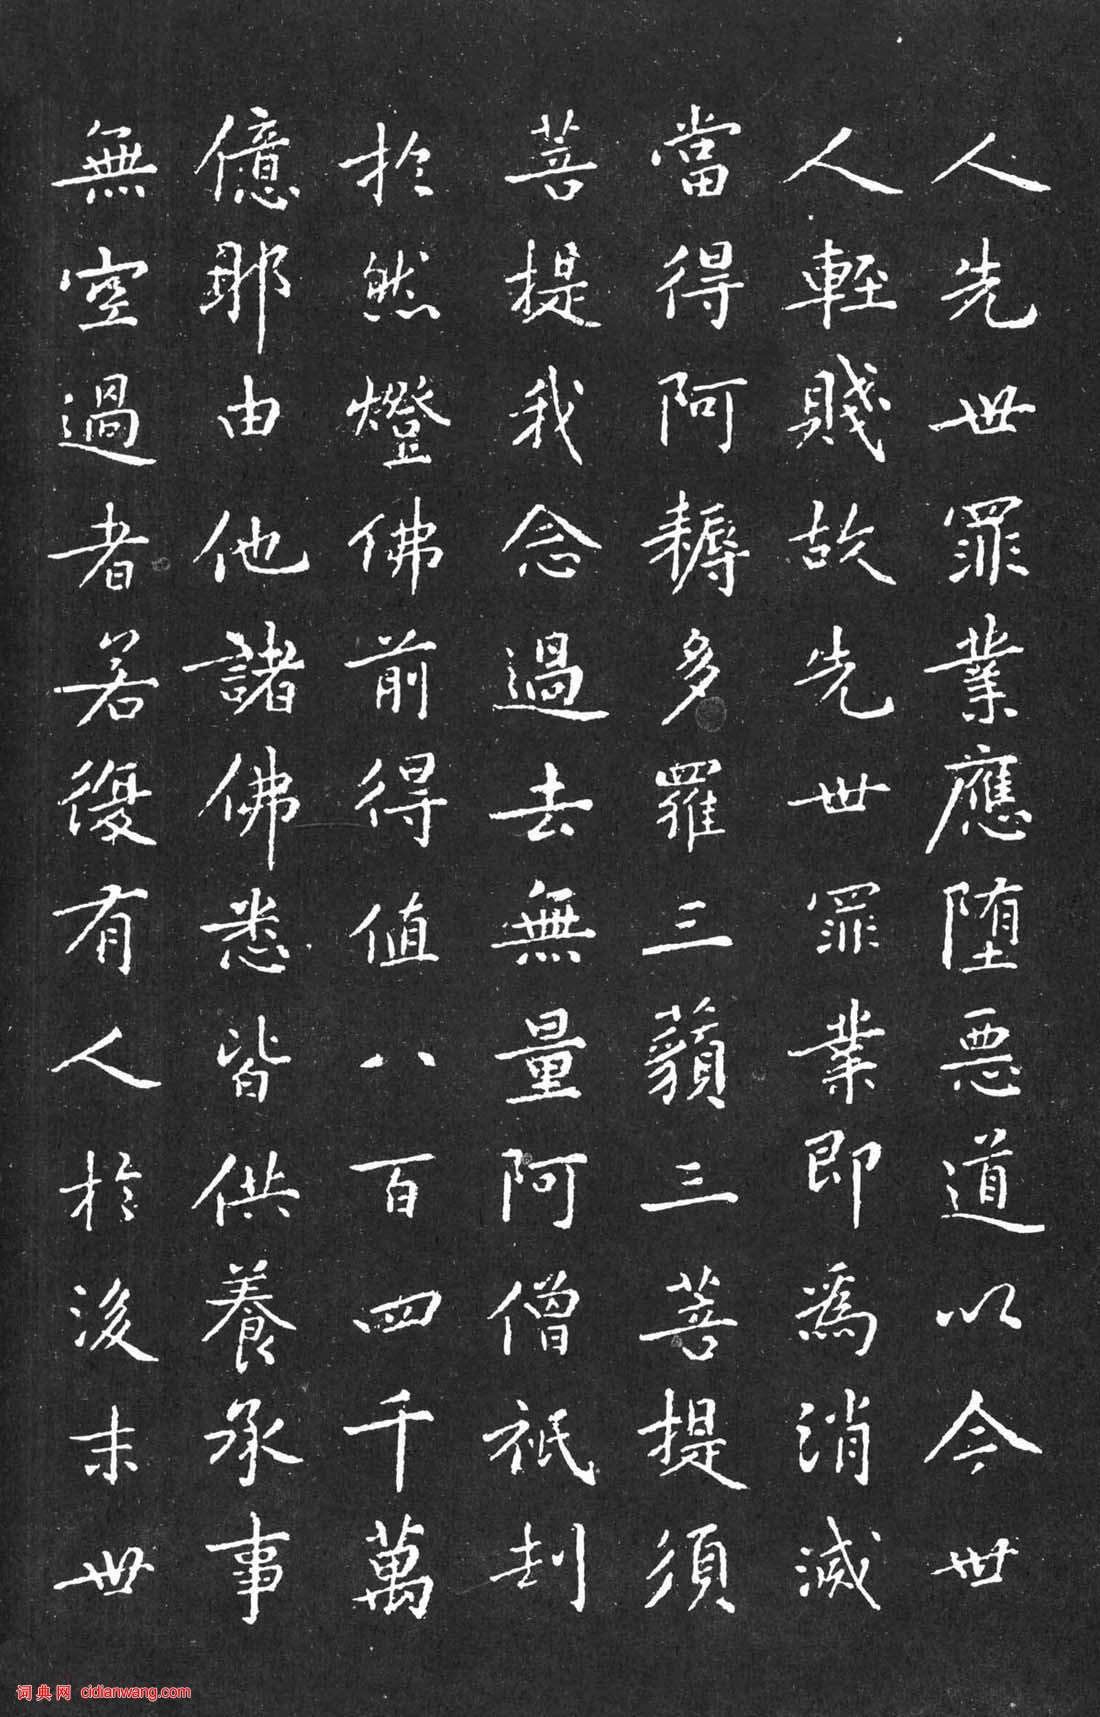 人先世罪業應堕惡道以今世
人輕賤故先世罪業即為消滅
當得阿耨多羅三藐三菩提須
菩提我念過去無量阿僧祇刧
扵然燈佛前得值八百四千萬
億那由他諸佛悉皆供養承事
無空過者若復有人扵後末世
词典网 cidianwang.com